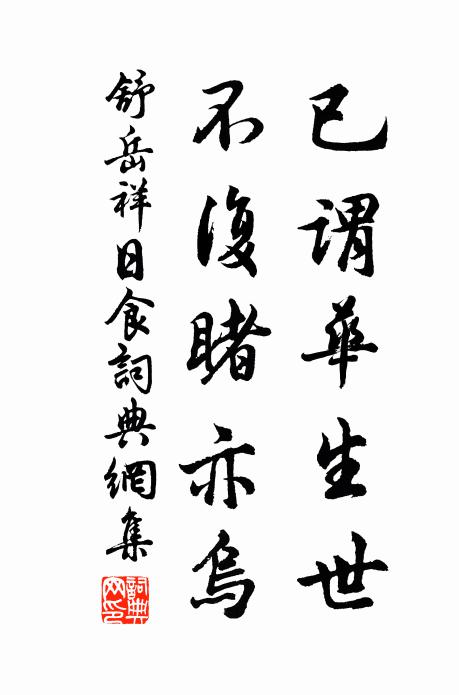 已謂華生世
不復睹亦烏
舒岳祥日食詞典網集
詞典网印